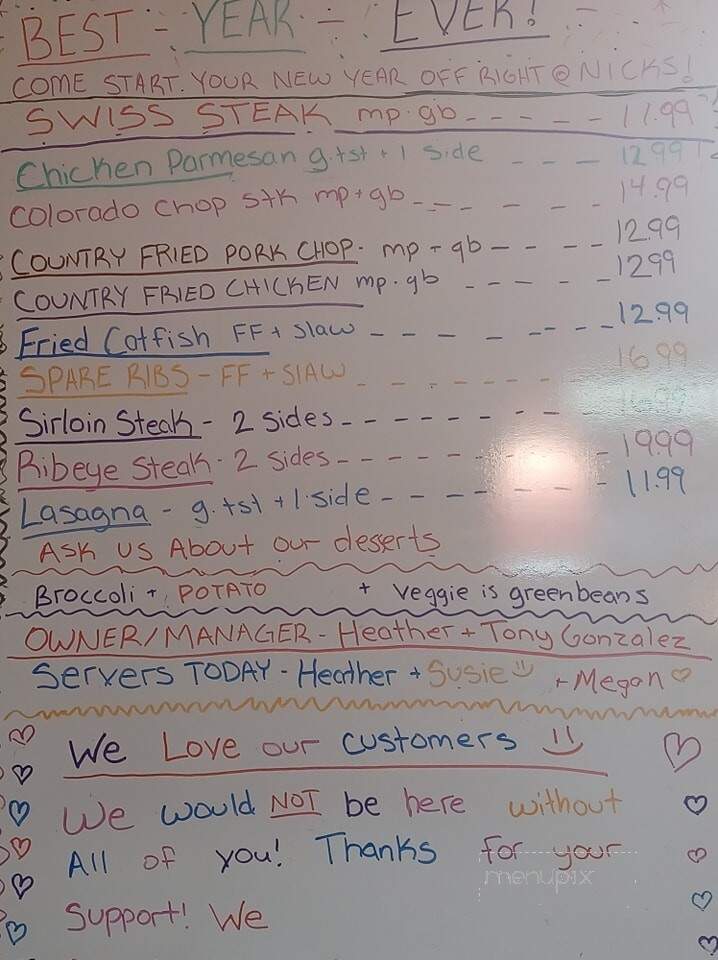 BEST - YEAR - EVER!
COME START YOUR NEW YEAR OFF RIGHT @ NICKS!
SWISS STEAK mp. gb - - - - - 11.99
Chicken Parmesan g.tst + 1 side - - - 12.99
Colorado Chop Stk mp + gb - - - - - - 14.99
COUNTRY FRIED PORK CHOP - mp + gb - - - - 12.99
COUNTRY FRIED CHICKEN mp. gb - - - - - 12.99
Fried Catfish FF + Slaw - - - - - - - - 12.99
SPARE RIBS - FF + SLAW - - - - - - - 16.99
Sirloin Steak - 2 sides - - - - - - - -
Ribeye Steak - 2 sides - - - - - - - - - 19.99
Lasagna - g. tst + 1 side - - - - - - - 11.99
ASK US About our desserts
Broccoli + POTATO + veggie is greenbeans
OWNER/MANAGER - Heather + Tony Gonzalez
Servers TODAY - Heather + Susie + Megan
We Love our customers
We would NOT be here without
All of you! Thanks for your
menupix
Support! We